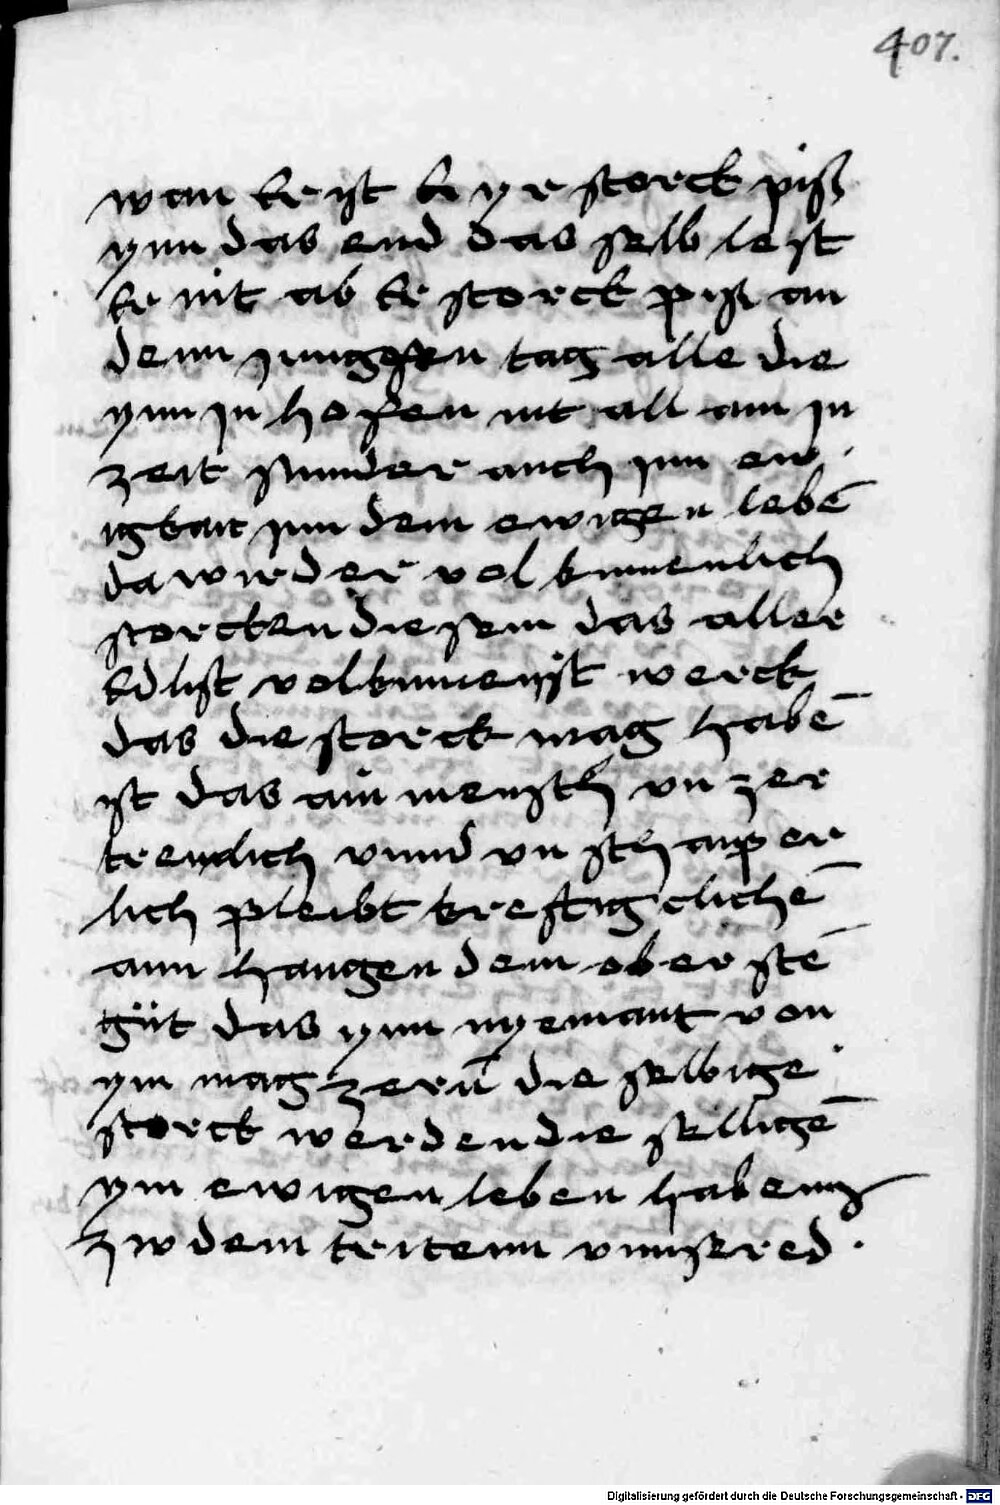 407.
wan er ist er yr storck piß
ynn das end das selb lest
er nit ab er storck piß an
denn jungsten tag alle die
ynn jn hoffen nit all ain jn
zeit sunnder auch jnn ew
igkait jnn dem ewigen lebē
da wirder vol kumenlich
storcken die sein das aller
edlist volkumenist werck
das die storck mag habē
ist das ain mensch vn zer
trenlich vnnd vn schaiper
lich pleibt kreftigclichē
ann hangen dem oberstē
güt das ynn nyemant von
ym mag zerñ die selbige
storck werden die selligē
ym ewigen leben habenn
zw dem tritenn vnnser ed
Digitalisierung gefördert durch die Deutsche Forschungsgemeinschaft - DFG